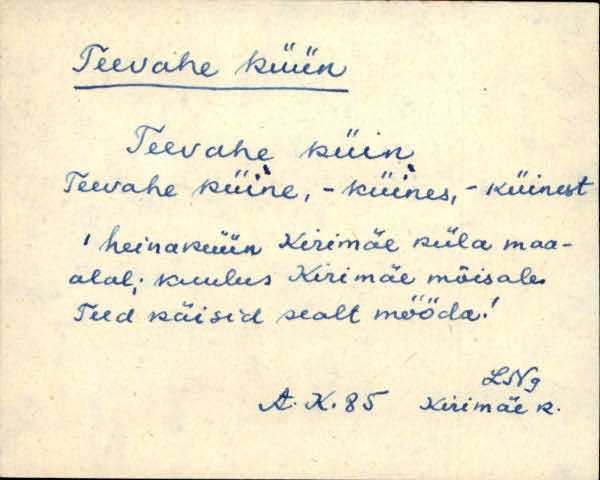 Teevahe küün
Teevahe küin
Teevahe küine, -küines, -küinest
' heinaküün Kirimäe küla maa-
alal; kuulus Kirimäe mõisale.
Teed käisid sealt mööda.'
LNg
A. K. 85 Kirimäe k.